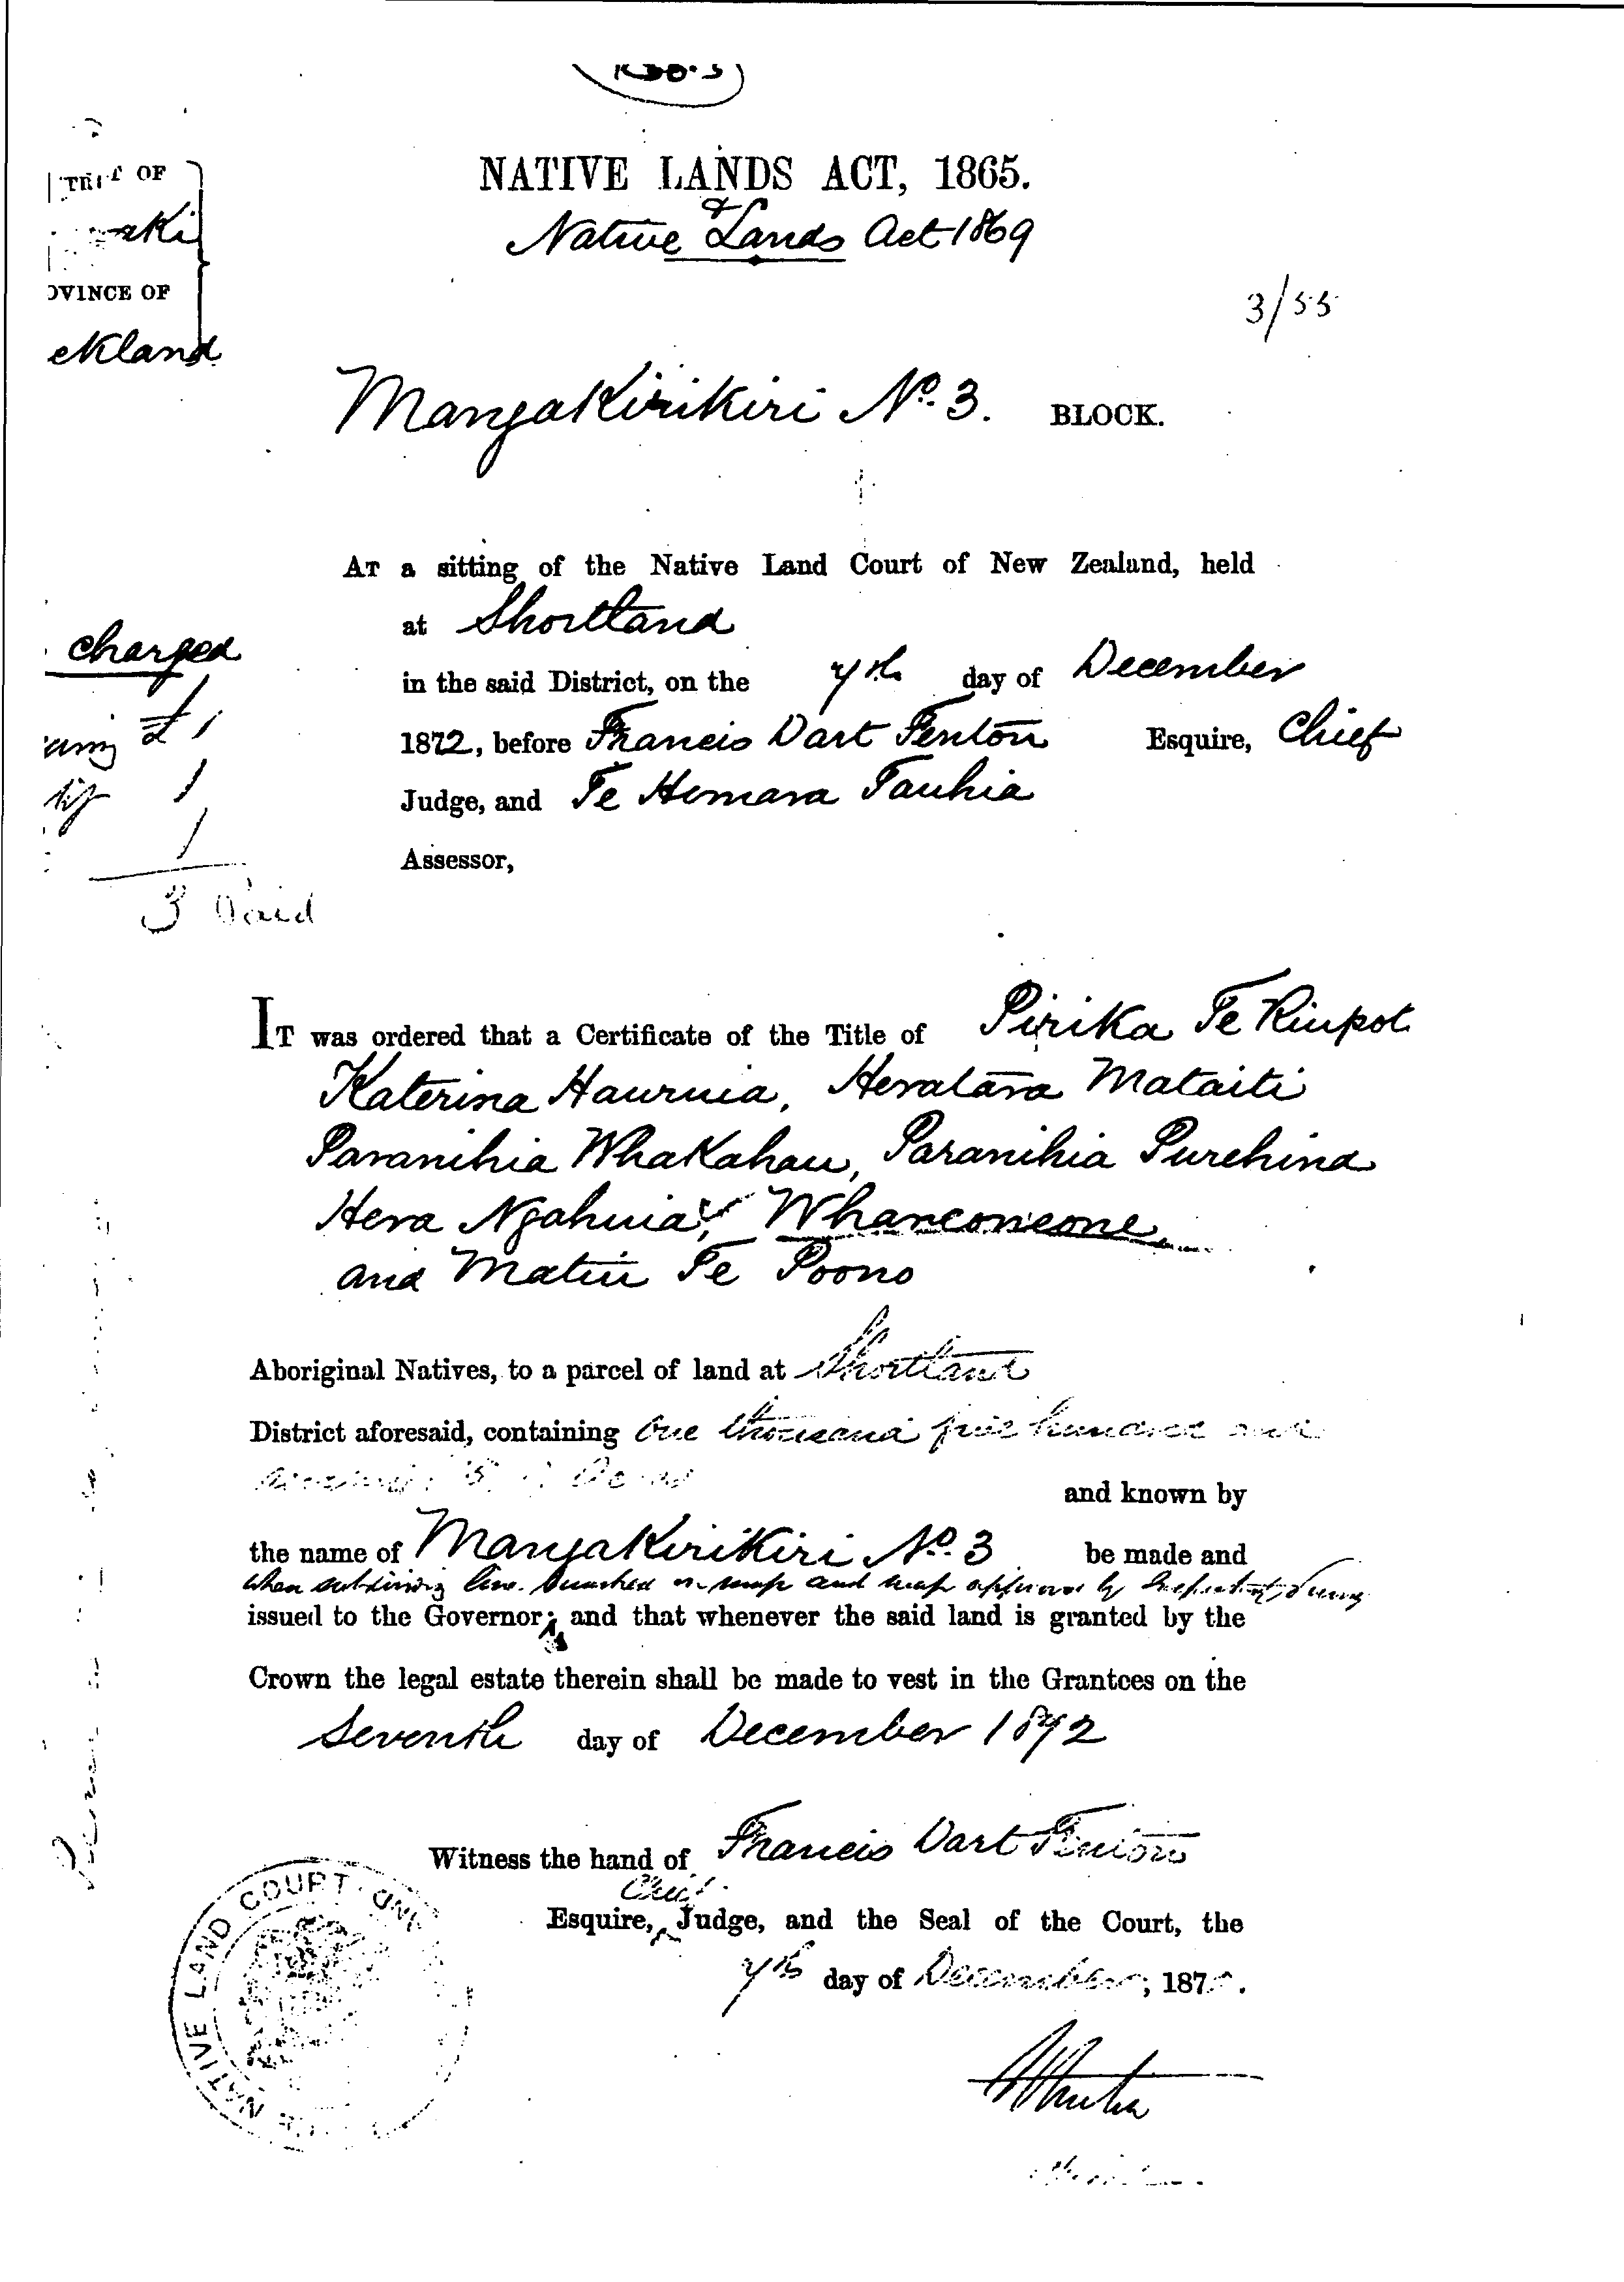 OF
NATIVE LANDS ACT, 1865.
&
Native Lands Act 1869
aki
OVINCE OF
3/55
ckland
Mangakirikiri No. 3. BLOCK.
AT a sitting of the Native Land Court of New Zealand, held
at Shortland
charged
in the said District, on the 7th day of December
£1
1872, before Francis Dart Fenton Esquire, Chief
1
Judge, and Te Hemara Tauhia
1
Assessor,
3 Paid
IT was ordered that a Certificate of the Title of Pirika Te
Katerina Hauruia, Heratara Mataiti
Paranihia Whakahau, Paranihia Purehina
Hera Ngahuia, Whareoneone,
and Matiu Te Poono
Aboriginal Natives, to a parcel of land at Shortland
District aforesaid, containing One thousand five hundred and
and known by
the name of Mangakirikiri No. 3 be made and
when subdividing line on map and map approved by Inspector of
issued to the Governor; and that whenever the said land is granted by the
Crown the legal estate therein shall be made to vest in the Grantees on the
Seventh day of December 1872
Witness the hand of Francis Dart Fenton
Chief
Esquire, Judge, and the Seal of the Court, the
7th day of December, 187
NATIVE LAND COURT